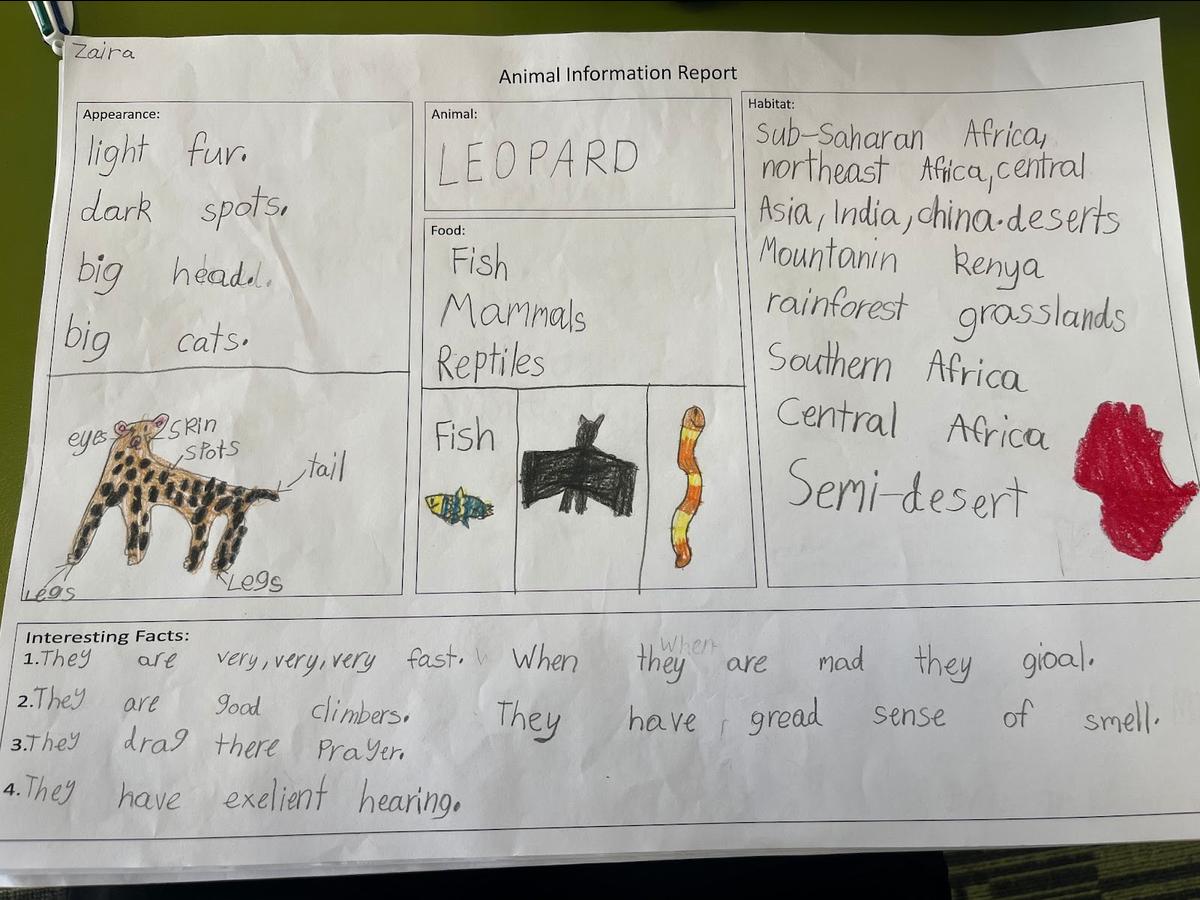 Zaira
Animal Information Report
Appearance:
light fur.
dark spots.
big head.
big cats.
eyes
skin
spots
tail
Legs
Legs
Animal:
LEOPARD
Food:
Fish
Mammals
Reptiles
Fish
Habitat:
Sub-Saharan Africa,
northeast Africa, central
Asia, India, china. deserts
Mountanin Kenya
rainforest grasslands
Southern Africa
Central Africa
Semi-desert
Interesting Facts:
1. They are very, very, very fast. When they are mad they gioal.
When
2. They are good climbers. They have gread sense of smell.
3. They drag there Prayer.
4. They have exelient hearing.